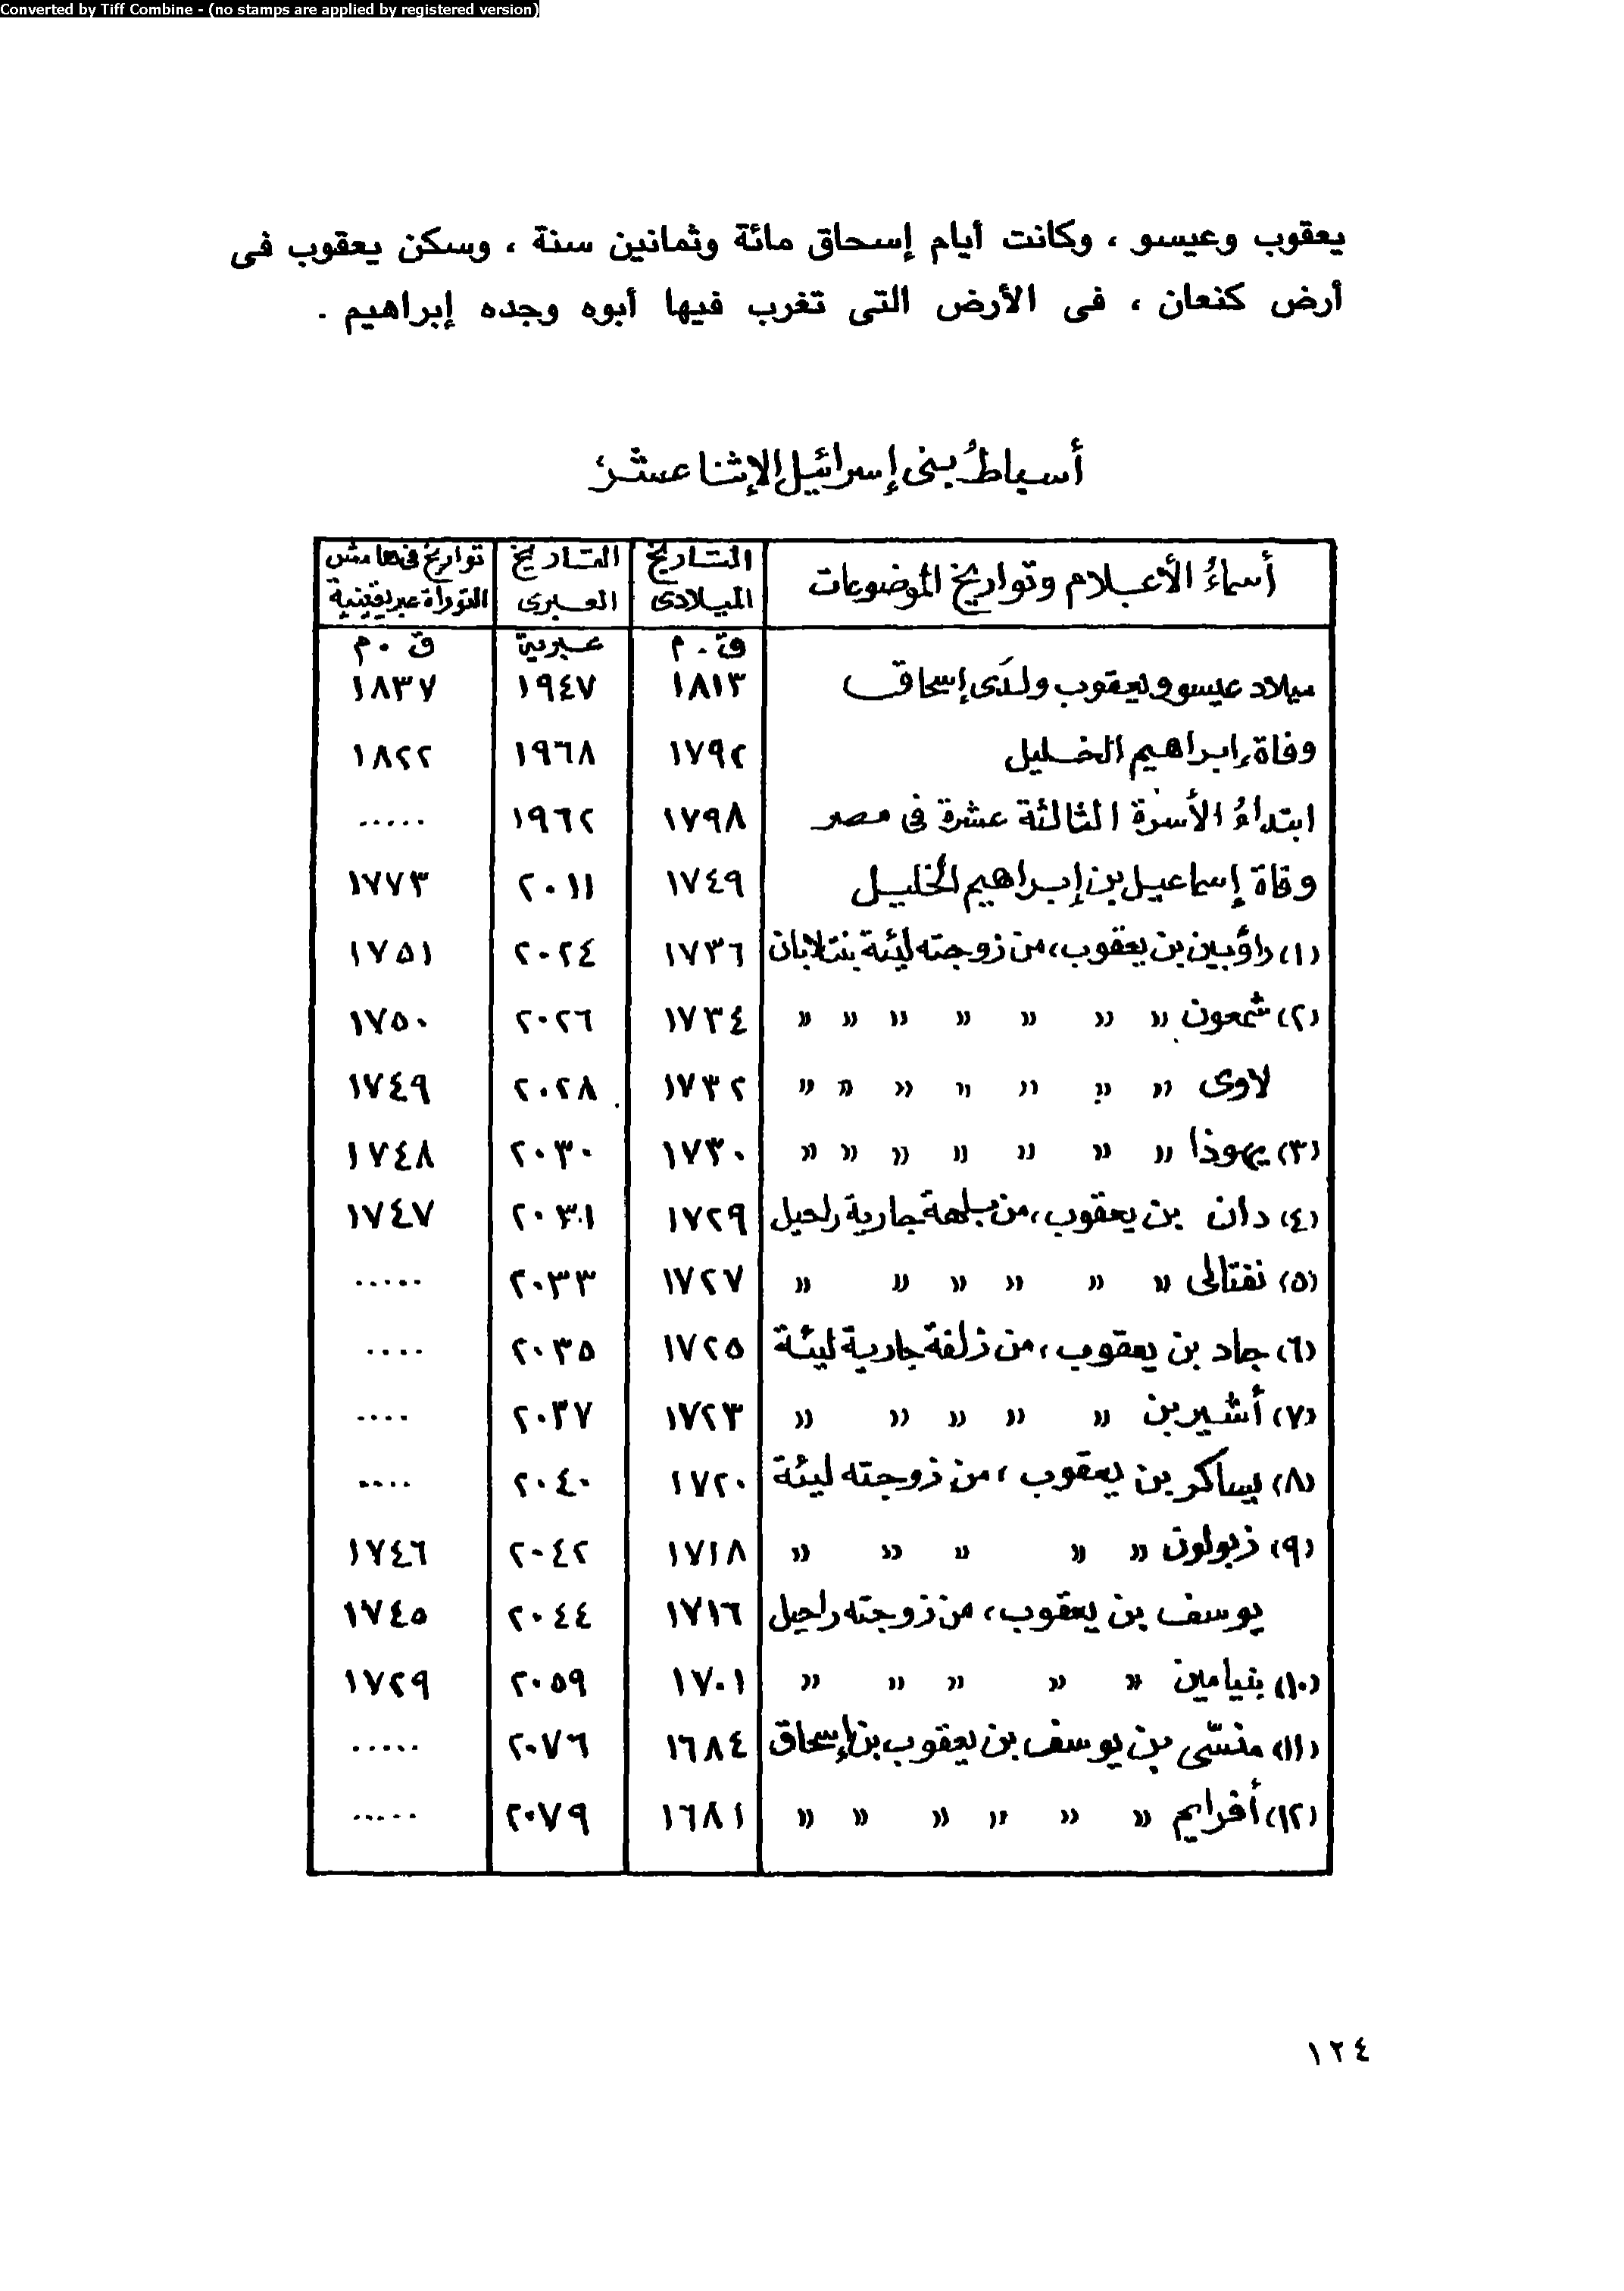 Converted by Tiff Combine - (no stamps are applied by registered version)
يعقوب وعيسو ، وكانت أيام إسحاق مائة وثمانين سنة ، وسكن يعقوب فى
أرض كنعان ، فى الأرض التى تغرب فيها أبوه وجده إبراهيم .
أسباطُ بنى إسرائيل الإثنا عشر؛
أسماءُ الأعلام وتواريخ الموضوعات | التاريخ الميلادى | التاريخ العبرى | تواريخ فى هامش التوراة عبر يقينية
ق.م | عبرية | ق.م
ميلاد عيسو ويعقوب ولدَى إسحاق | ١٨١٣ | ١٩٤٧ | ١٨٣٧
وفاة إبراهيم الخليل | ١٧٩٢ | ١٩٦٨ | ١٨٢٢
ابتداءُ الأسرة الثالثة عشرة فى مصر | ١٧٩٨ | ١٩٦٢ | .....
وفاة إسماعيل بن إبراهيم الخليل | ١٧٤٩ | ٢٠١١ | ١٧٧٣
(١) رأوبين بن يعقوب، من زوجته ليئة بنت لابان | ١٧٣٦ | ٢٠٢٤ | ١٧٥١
(٢) شمعون » » » » » » » | ١٧٣٤ | ٢٠٢٦ | ١٧٥٠
لاوى » » » » » » » | ١٧٣٢ | ٢٠٢٨ | ١٧٤٩
(٣) يهوذا » » » » » » » | ١٧٣٠ | ٢٠٣٠ | ١٧٤٨
(٤) دان بن يعقوب، من بلهة جارية راحيل | ١٧٢٩ | ٢٠٣١ | ١٧٤٧
(٥) نفتالى » » » » » » | ١٧٢٧ | ٢٠٣٣ | .....
(٦) جاد بن يعقوب، من زلفة جارية ليئة | ١٧٢٥ | ٢٠٣٥ | ....
(٧) أشير بن » » » » » | ١٧٢٣ | ٢٠٣٧ | ....
(٨) يساكر بن يعقوب، من زوجته ليئة | ١٧٢٠ | ٢٠٤٠ | ....
(٩) زبولون » » » » » | ١٧١٨ | ٢٠٤٢ | ١٧٤٦
يوسف بن يعقوب، من زوجته راحيل | ١٧١٦ | ٢٠٤٤ | ١٧٤٥
(١٠) بنيامين » » » » » | ١٧٠١ | ٢٠٥٩ | ١٧٢٩
(١١) منسّى بن يوسف بن يعقوب بن إسحاق | ١٦٨٤ | ٢٠٧٦ | .....
(١٢) أفرايم » » » » » » | ١٦٨١ | ٢٠٧٩ | .....
١٢٤